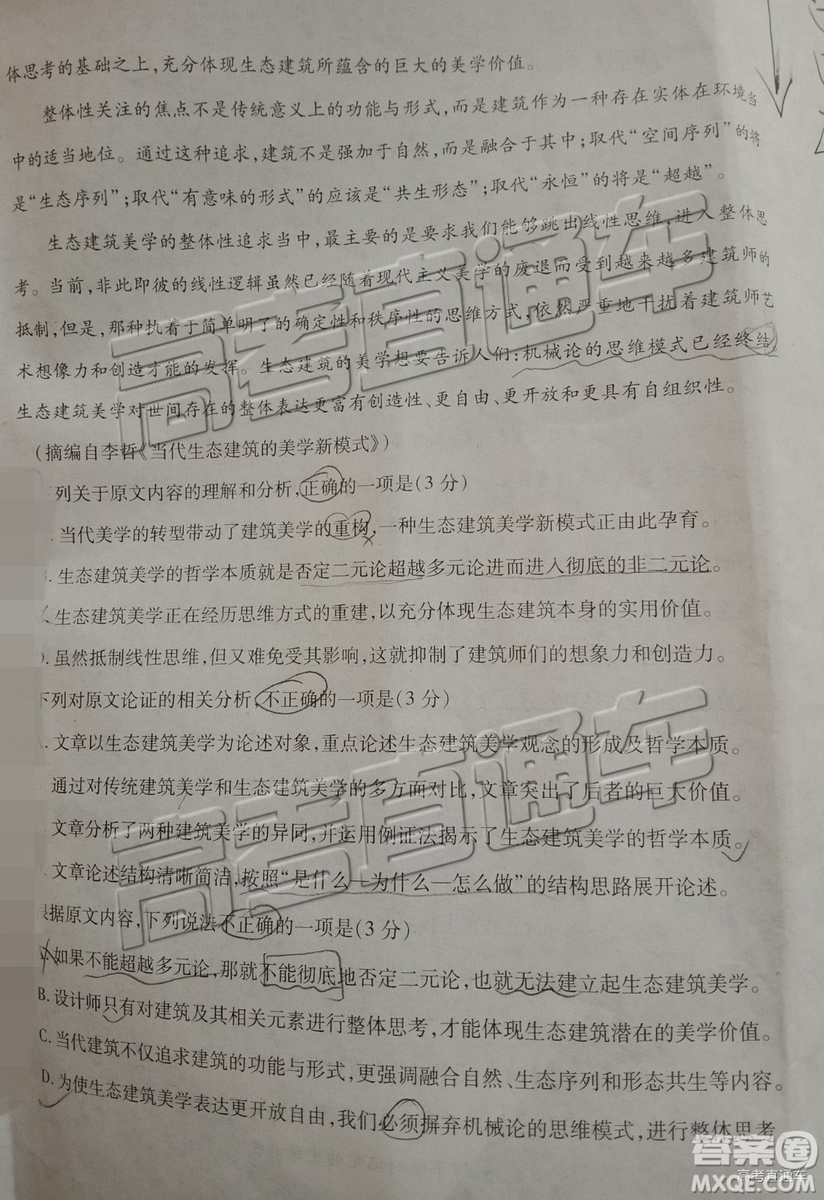 体思考的基础之上,充分体现生态建筑所蕴含的巨大的美学价值。
整体性关注的焦点不是传统意义上的功能与形式,而是建筑作为一种存在实体在环境当
中的适当地位。通过这种追求,建筑不是强加于自然,而是融合于其中;取代“空间序列”的将
是“生态序列”;取代“有意味的形式”的应该是“共生形态”;取代“永恒”的将是“超越”。
生态建筑美学的整体性追求当中,最主要的是要求我们能够跳出线性思维,进入整体思
考。当前,非此即彼的线性逻辑虽然已经随着现代主义美学的废退而受到越来越多建筑师的
抵制,但是,那种执着于简单明了的确定性和秩序性的思维方式,依然严重地干扰着建筑师艺
术想像力和创造才能的发挥。生态建筑的美学想要告诉人们:机械论的思维模式已经终结,
生态建筑美学对世间存在的整体表达更富有创造性、更自由、更开放和更具有自组织性。
(摘编自李哲《当代生态建筑的美学新模式》)
列关于原文内容的理解和分析,正确的一项是(3分)
当代美学的转型带动了建筑美学的重构,一种生态建筑美学新模式正由此孕育。
生态建筑美学的哲学本质就是否定二元论超越多元论进而进入彻底的非二元论。
生态建筑美学正在经历思维方式的重建,以充分体现生态建筑本身的实用价值。
D.虽然抵制线性思维,但又难免受其影响,这就抑制了建筑师们的想象力和创造力。
下列对原文论证的相关分析,不正确的一项是(3分)
文章以生态建筑美学为论述对象,重点论述生态建筑美学观念的形成及哲学本质。
通过对传统建筑美学和生态建筑美学的多方面对比,文章突出了后者的巨大价值。
文章分析了两种建筑美学的异同,并运用例证法揭示了生态建筑美学的哲学本质。
文章论述结构清晰简洁,按照“是什么—为什么—怎么做”的结构思路展开论述。
根据原文内容,下列说法不正确的一项是(3分)
如果不能超越多元论,那就不能彻底地否定二元论,也就无法建立起生态建筑美学。
B.设计师只有对建筑及其相关元素进行整体思考,才能体现生态建筑潜在的美学价值。
C.当代建筑不仅追求建筑的功能与形式,更强调融合自然、生态序列和形态共生等内容。
D.为使生态建筑美学表达更开放自由,我们必须摒弃机械论的思维模式,进行整体思考
高考直通车
高考直通车
答案圈
高考直通车
MXQE.COM